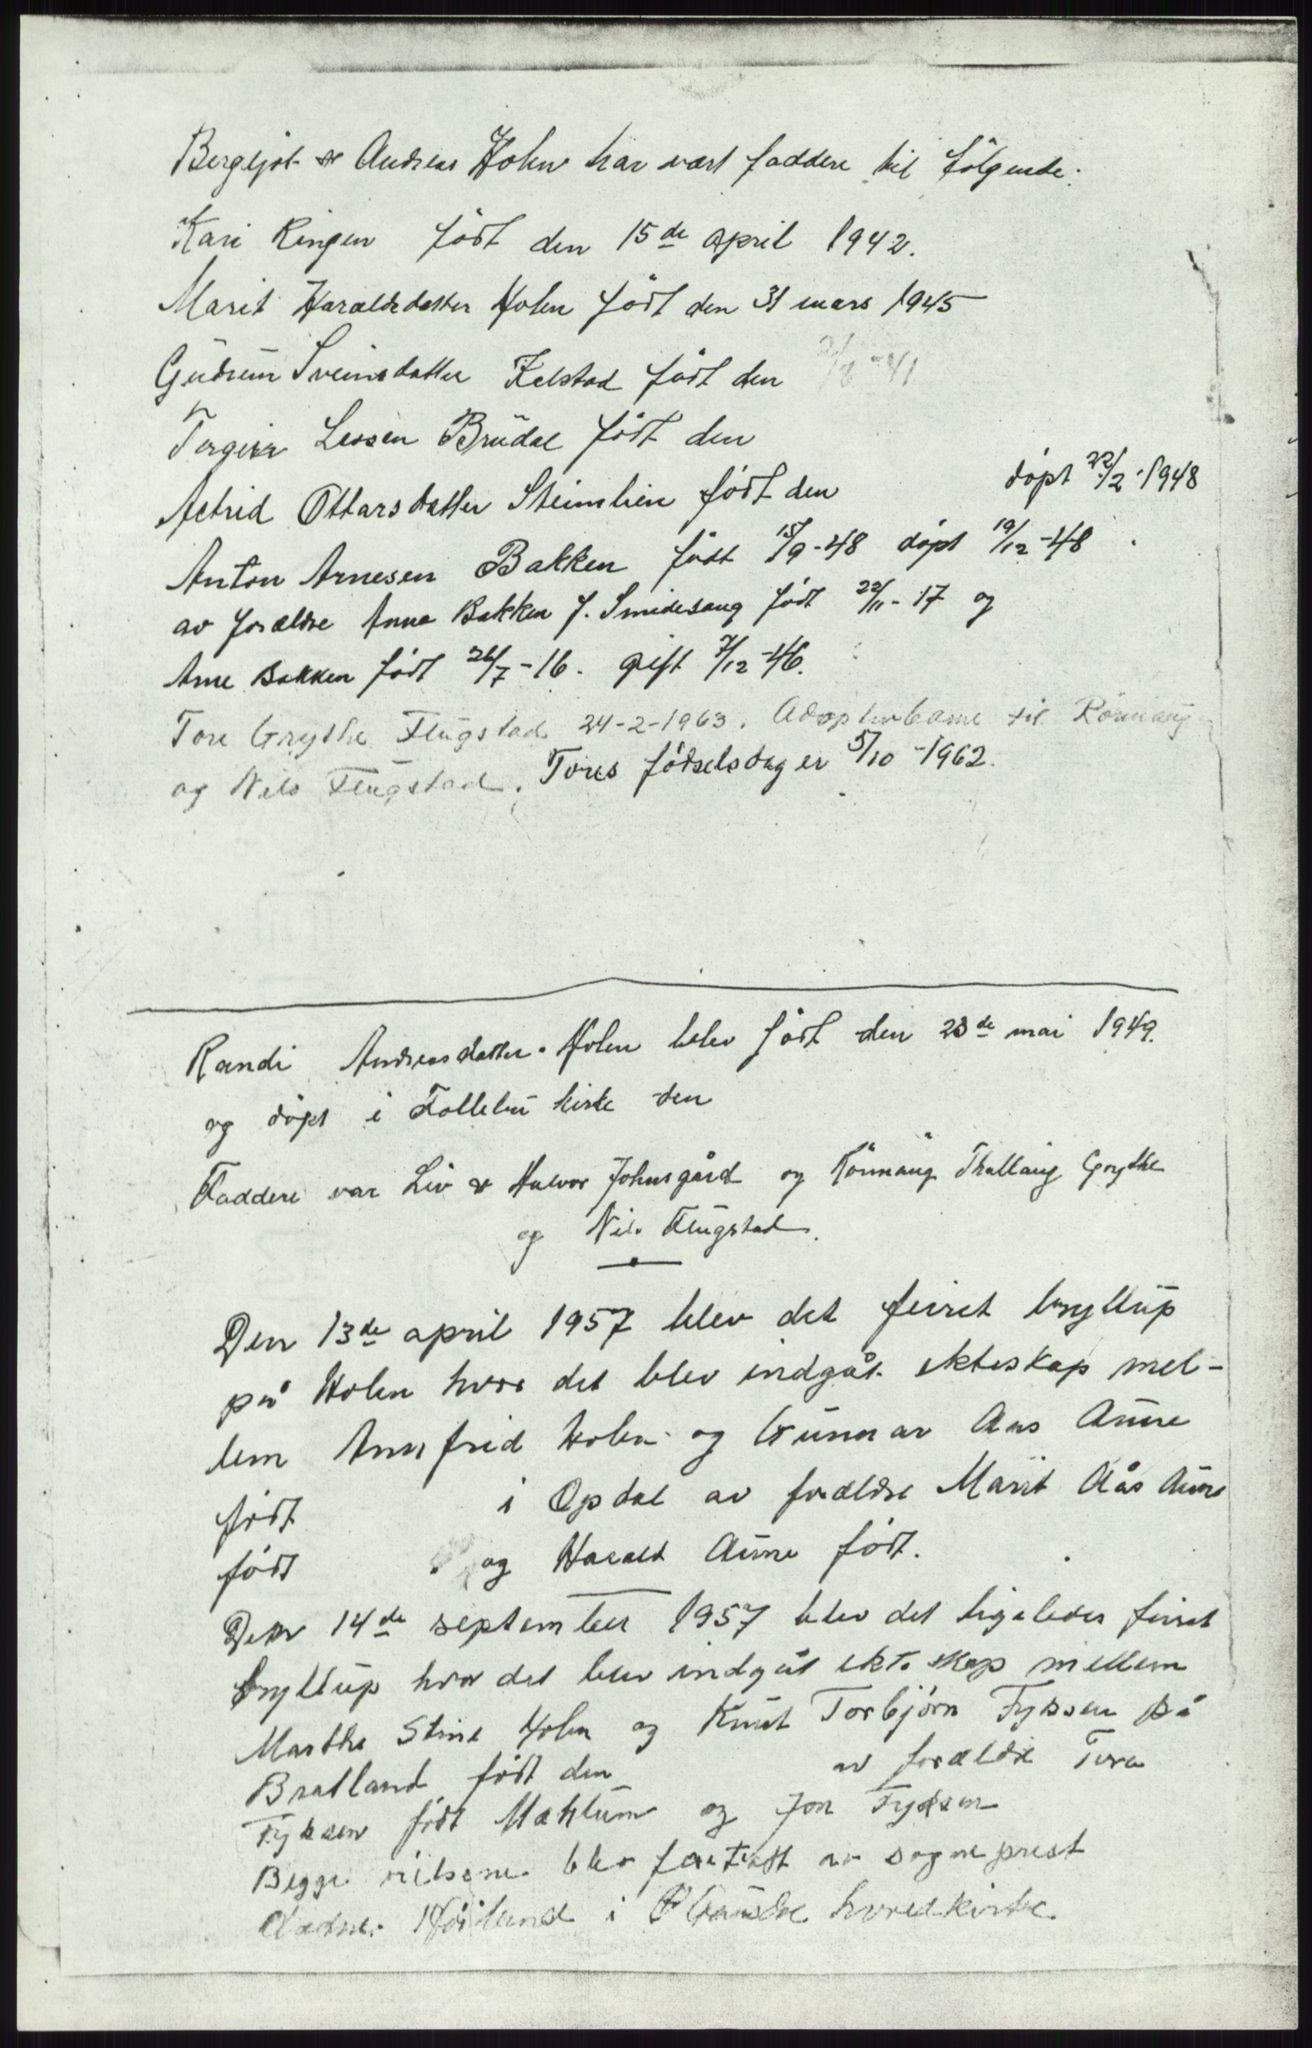 Bergljot & Andreas Holen har vært faddere til følgende:
Kari Ringen født den 15de april 1942.
Marit Haraldsdatter Holen født den 31 mars 1945
Gudrun Sveinsdatter Kalstad født den /8 -41
Torgeir Lassen Brudal født den
Astrid Ottarsdatter Steimlien født den døpt 22/2-1948
Anton Arnesen Bakken født 15/9-48 døpt 19/12-48
av forældre Anna Bakken f. Smidesang født 22/11-17 og
Arne Bakken født 26/7-16. gift 7/12-46.
Tore Grythe Flugstad 24-2-1963. Adoptivbarne til Rønnaug
og Nils Flugstad. Tores fødselsdag er 5/10-1962.
Randi Andreasdatter Holen blev født den 23de mai 1949.
og døpt i Follebu kirke den
Faddere var Liv & Halvor Johnsgård og Rønnaug Thallaug Grythe
og Nils Flugstad.
Den 13de april 1957 blev det feiret bryllup
på Holen hvor det blev indgåt ekteskap mel-
lem Annfrid Holen og Gunnar Aas Aune
født i Opdal av forældre Marit Aås Aune
født og Harald Aune født.
Den 14de september 1957 blev det ligeledes feiret
bryllup hvor det blev indgåt ekteskap mellem
Marthe Stine Holen og Knut Torbjørn Fyksen på
Bratland født den av forældre Tora
Fyksen født Mæhlum og Jon Fyksen
Begge vielsene blev foretatt av sogneprest
i hovedkirke.